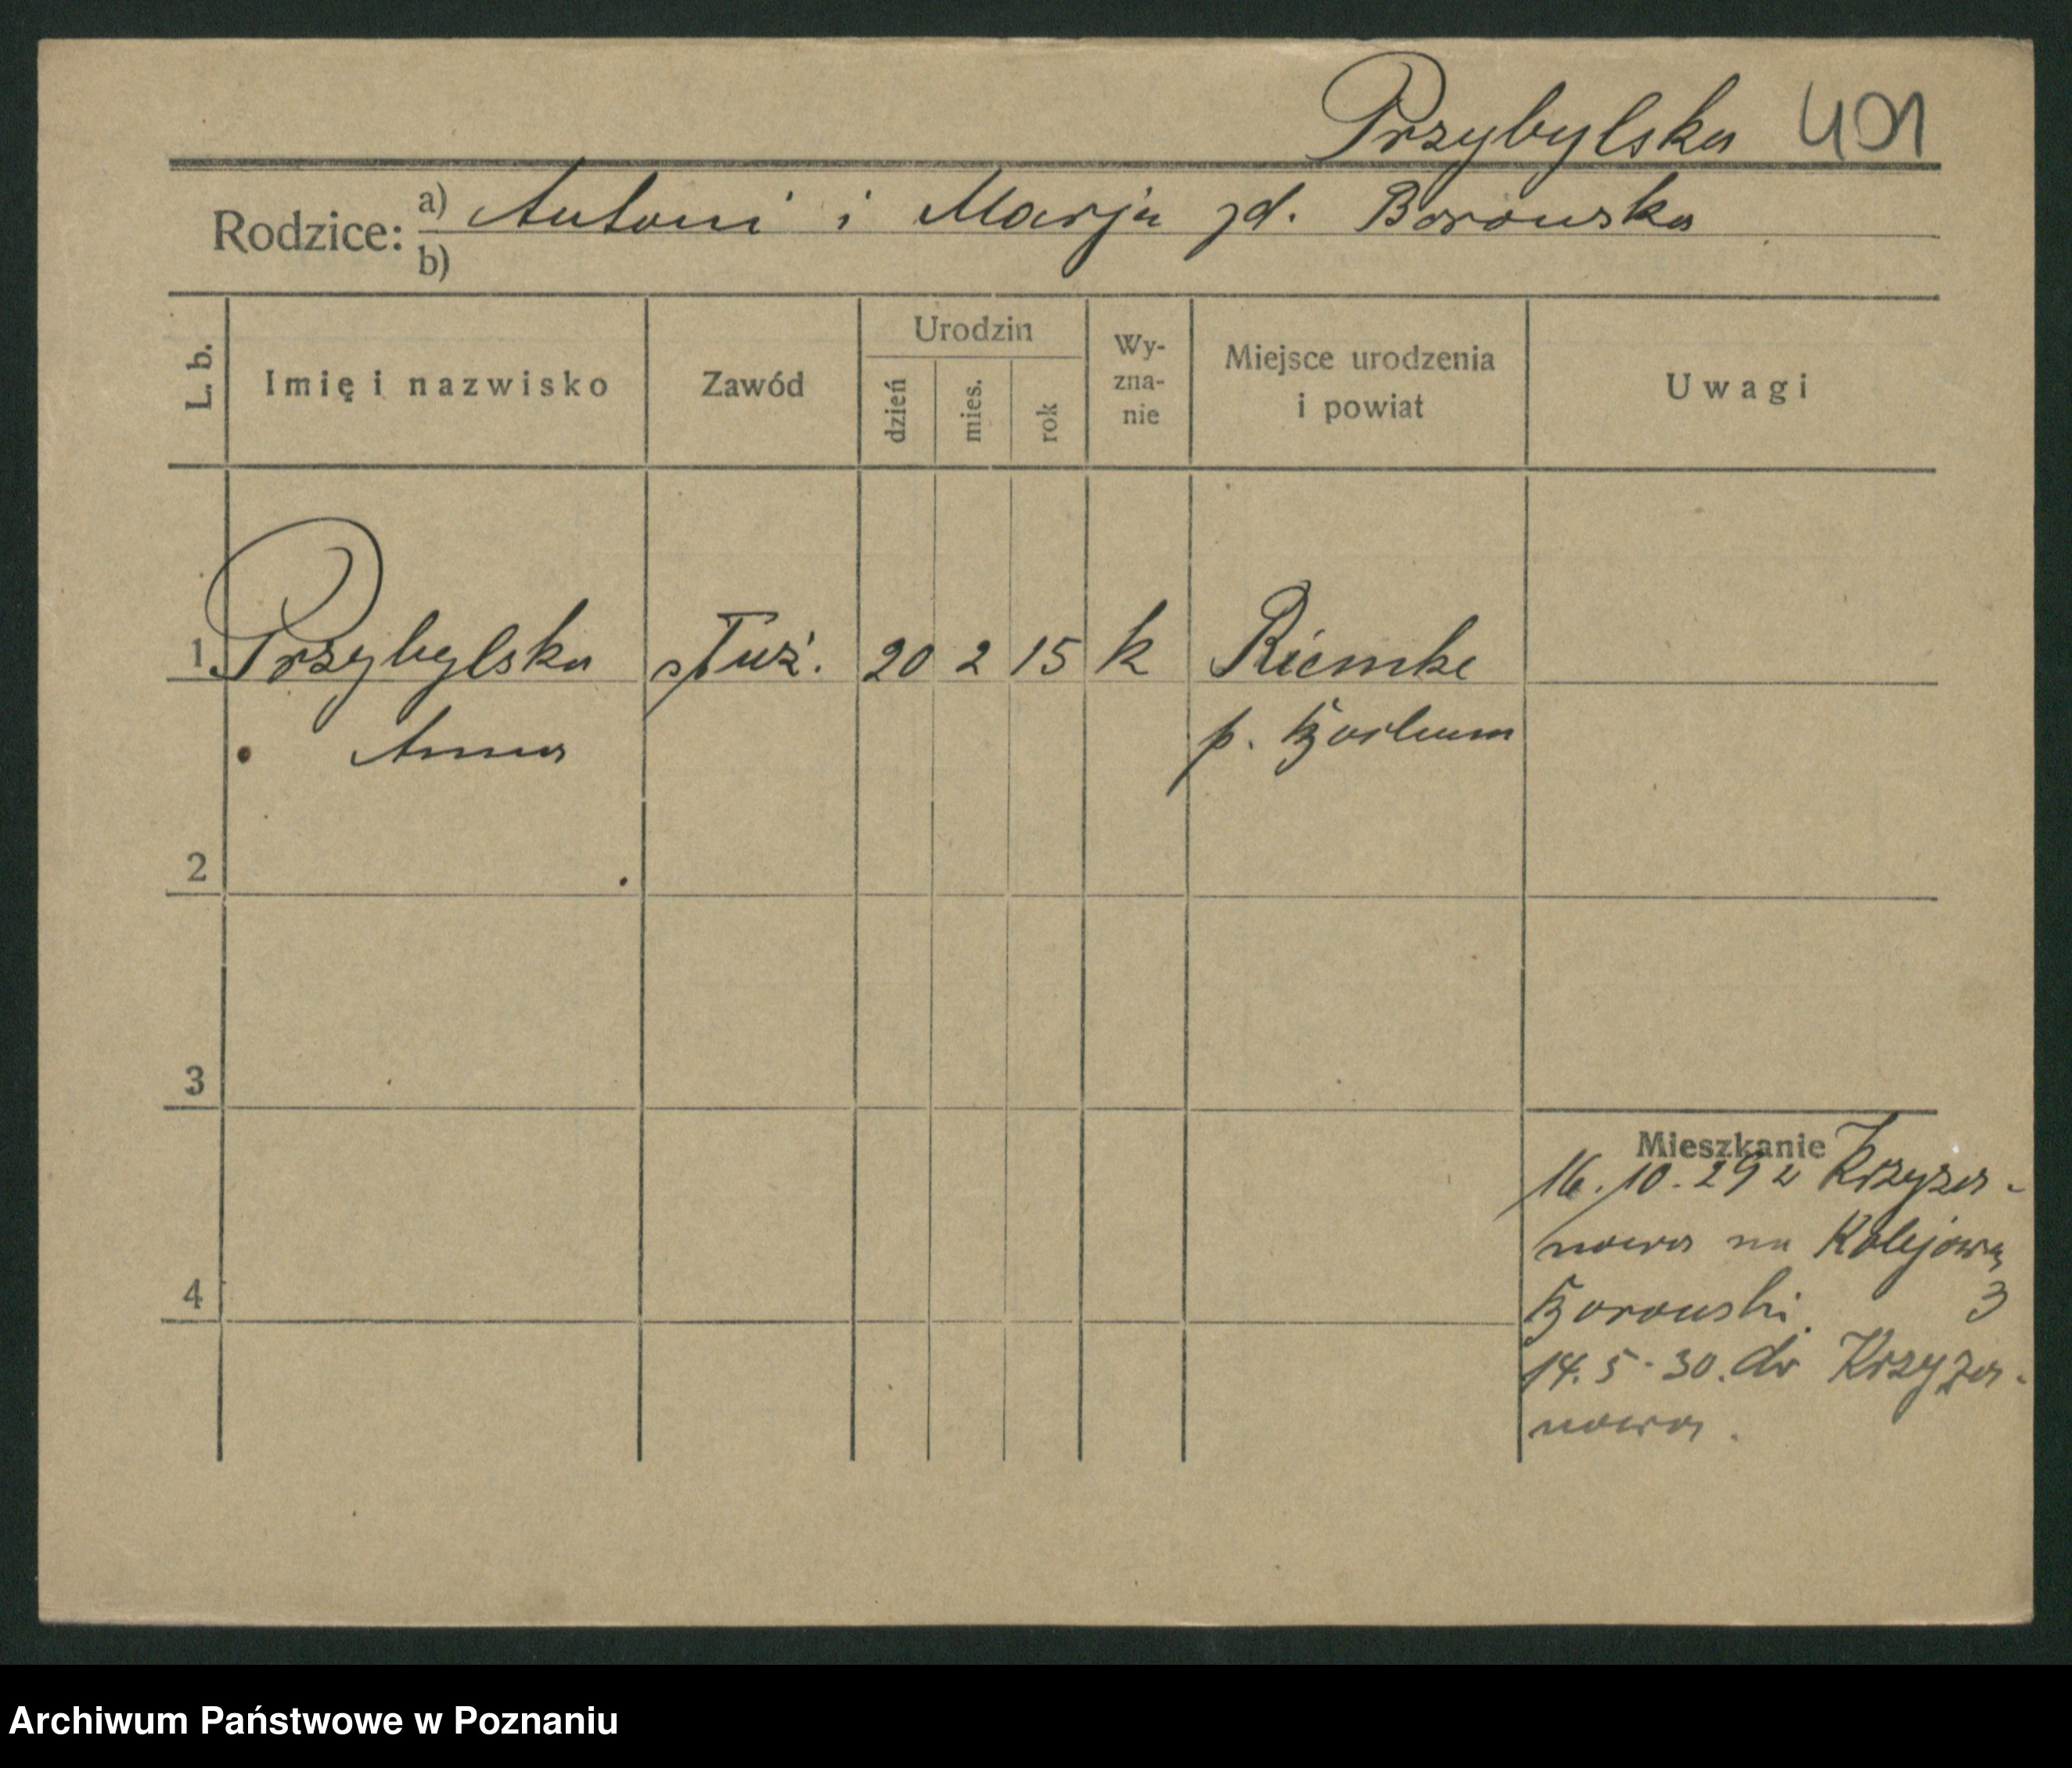 Przybylska 401
Rodzice: a) Antoni i Marja zd. Borowska
b)
L. b.
Imię i nazwisko
Zawód
Urodzin
dzień
mies.
rok
Wy-
zna-
nie
Miejsce urodzenia
i powiat
Uwagi
1 Przybylska służ. 20 2 15 k Riemke
Anna p. Bochum
2
3
Mieszkanie
16.10.29 z Krzyża-
nowa na Kolejową
4
Borowski. 3
14.5.30. do Krzyża-
nowa.
Archiwum Państwowe w Poznaniu